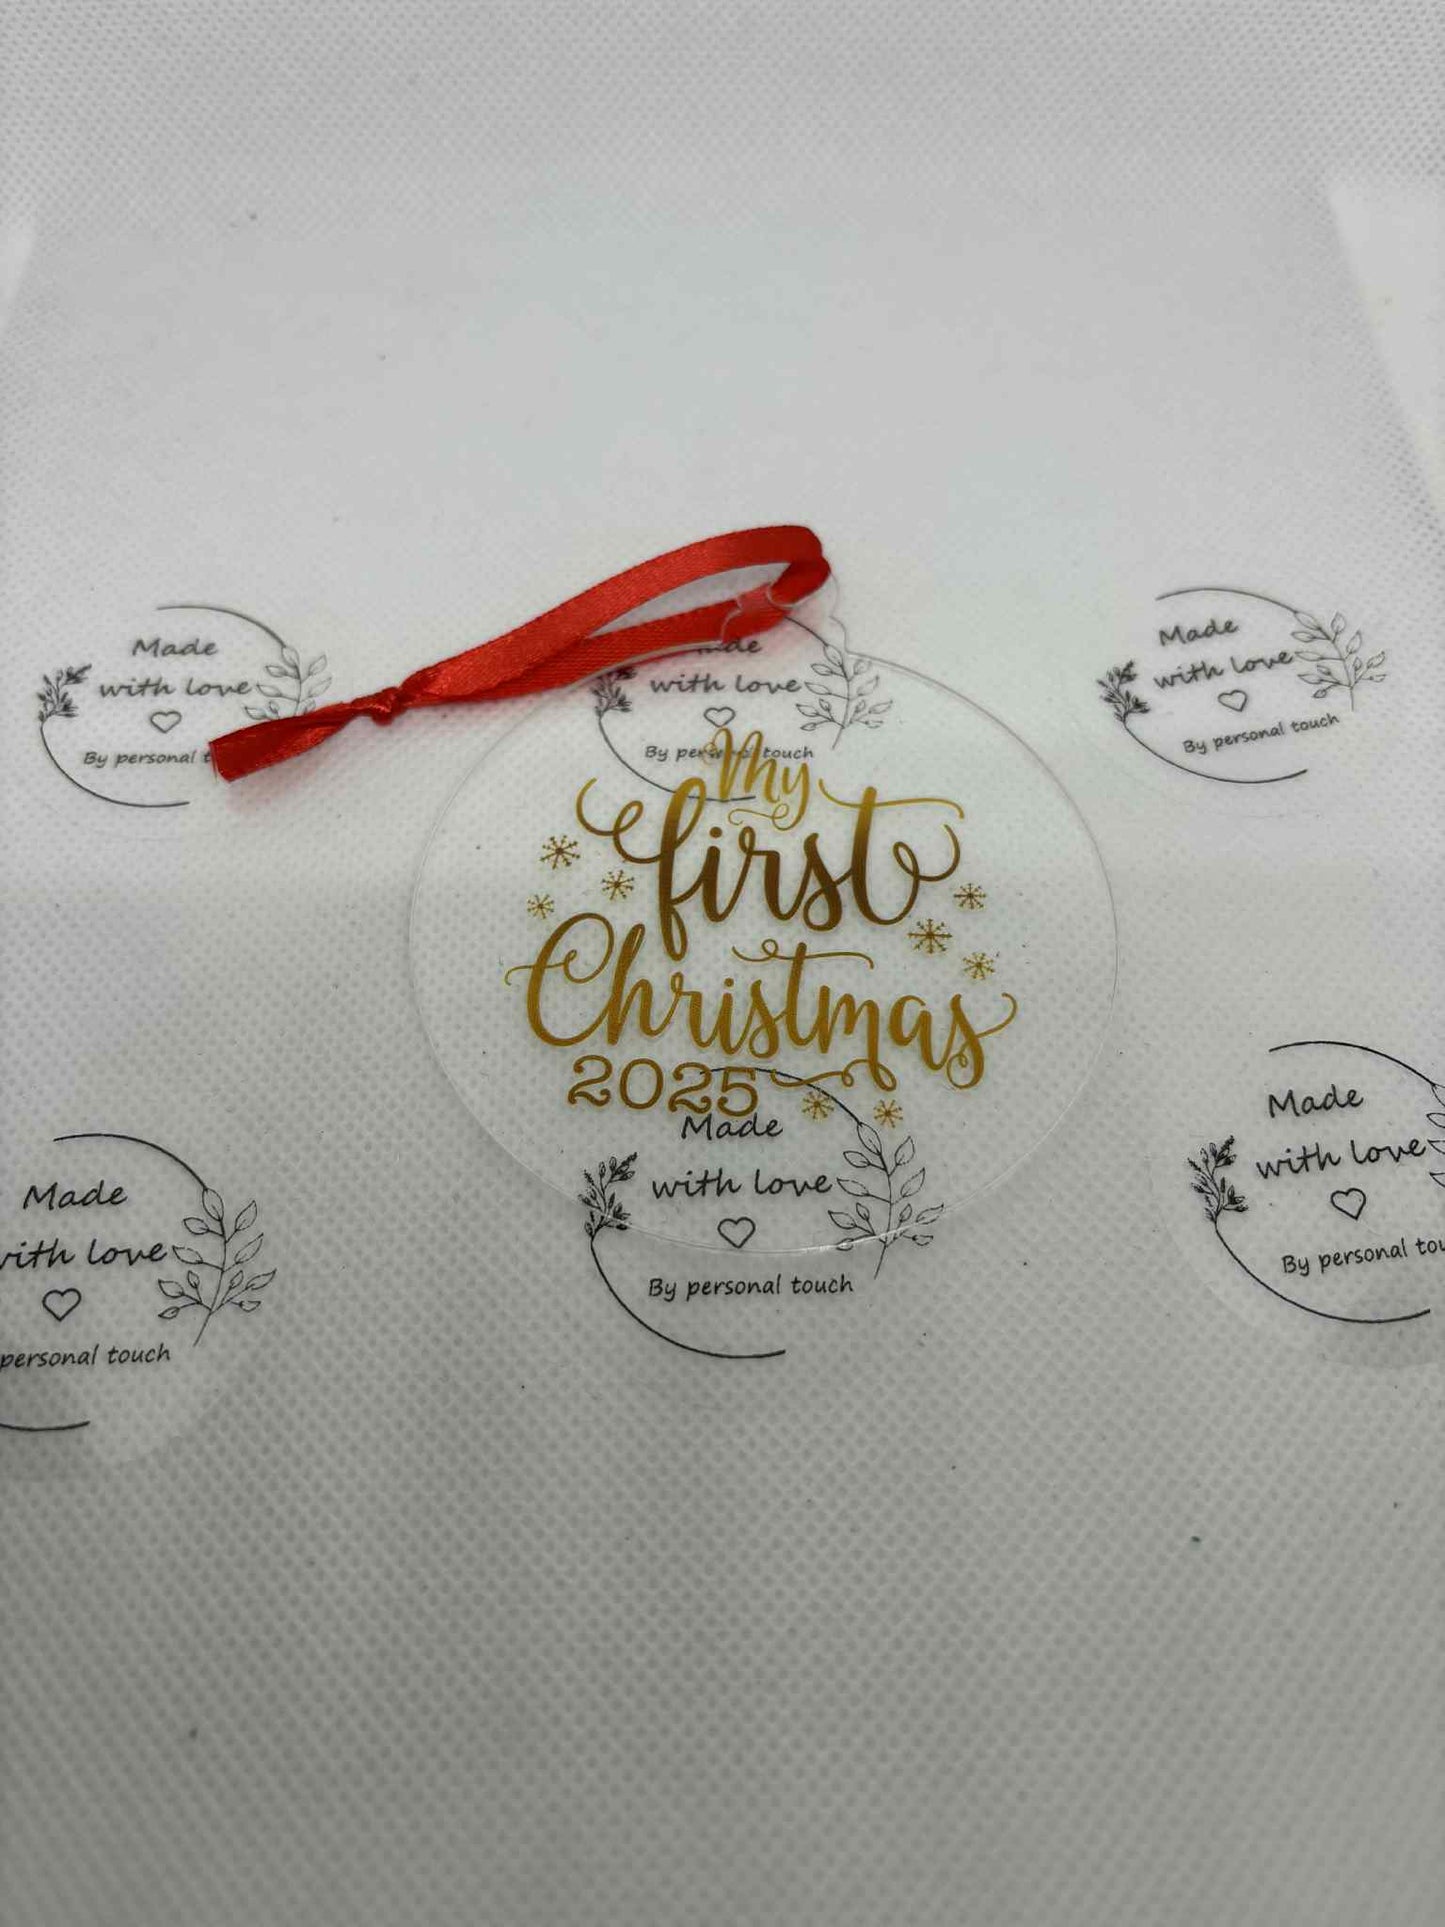 Made
with love
By personal
Made
with love
By personal touch
Made
with love
By personal touch
My
first
Christmas
2025
Made
with love
personal touch
Made
with love
By personal touch
Made
with love
By personal